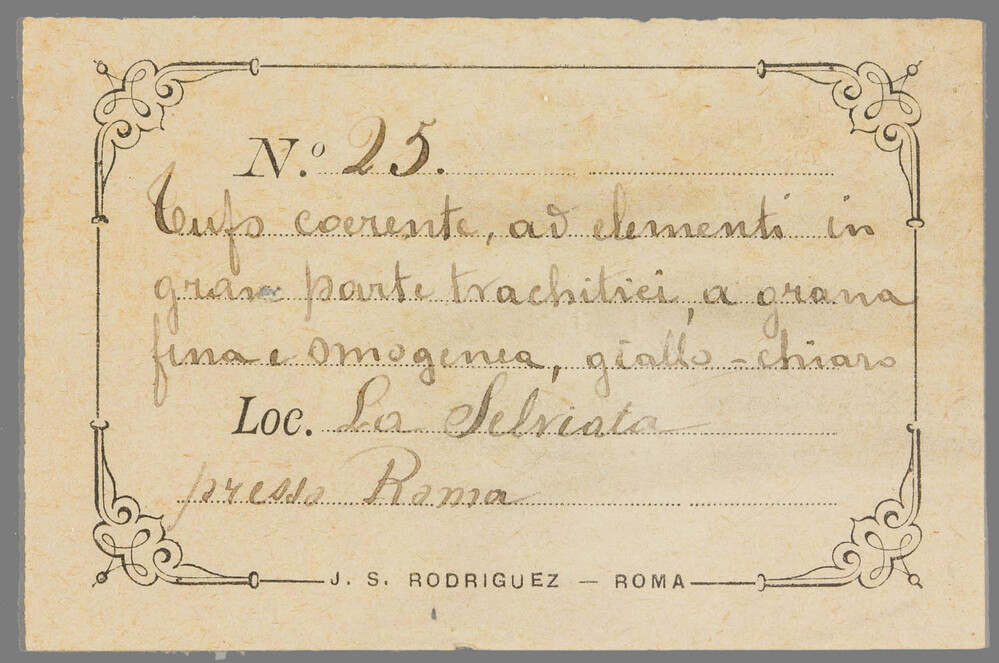 N.º 25.
Tufo coerente, ad elementi in
gran parte trachitici, a grana
fina e omogenea, giallo-chiaro
Loc. La Selviata
presso Roma
J. S. RODRIGUEZ — ROMA